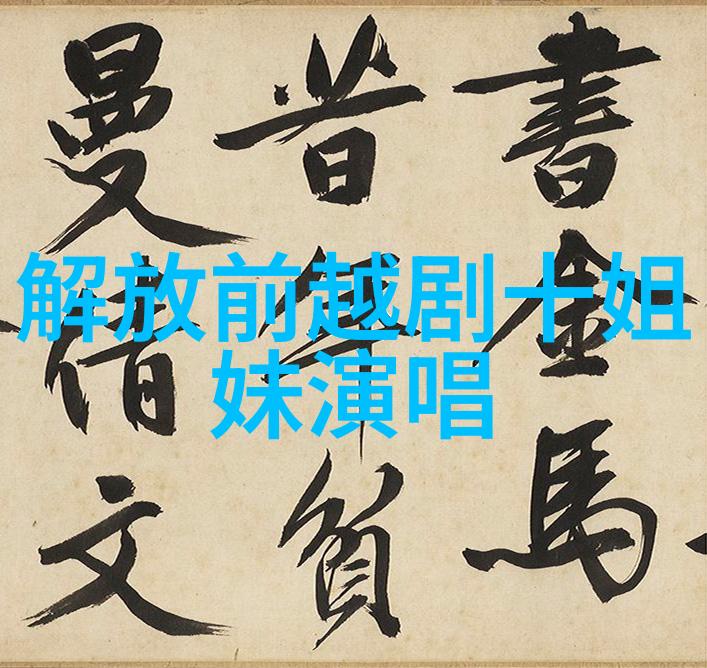 解放前越剧十姐
妹演唱
書金馬
昔年貧
曼倩文